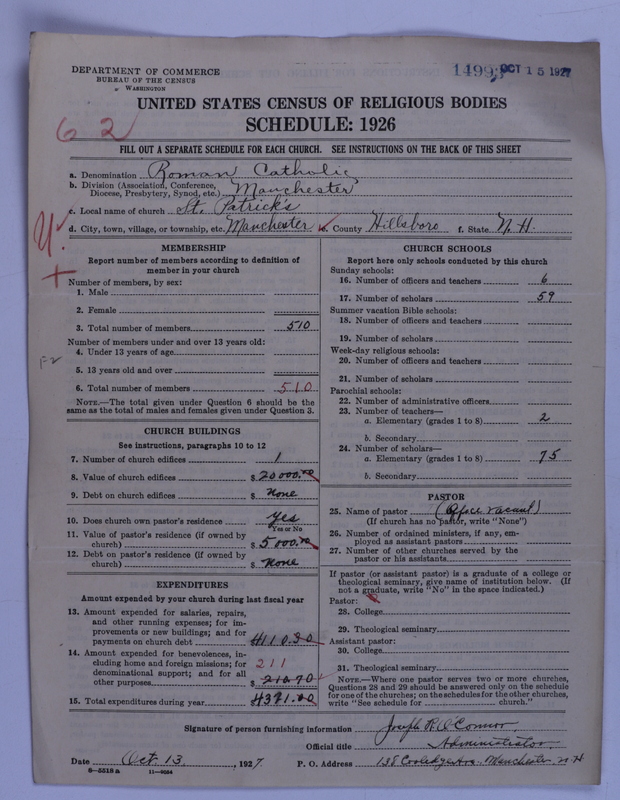 DEPARTMENT OF COMMERCE
BUREAU OF THE CENSUS
WASHINGTON
1499 OCT 15 1927
UNITED STATES CENSUS OF RELIGIOUS BODIES
SCHEDULE: 1926
62
FILL OUT A SEPARATE SCHEDULE FOR EACH CHURCH. SEE INSTRUCTIONS ON THE BACK OF THIS SHEET
a. Denomination Roman Catholic
b. Division (Association, Conference, Diocese, Presbytery, Synod, etc.) Manchester
c. Local name of church St. Patrick's
d. City, town, village, or township, etc. Manchester e. County Hillsboro f. State N.H.
MEMBERSHIP
Report number of members according to definition of
member in your church
Number of members, by sex:
1. Male
2. Female
3. Total number of members 510
Number of members under and over 13 years old:
4. Under 13 years of age
5. 13 years old and over
6. Total number of members 510
NOTE.—The total given under Question 6 should be the
same as the total of males and females given under Question 3.
CHURCH BUILDINGS
See instructions, paragraphs 10 to 12
7. Number of church edifices 1
8. Value of church edifices $ 20000.00
9. Debt on church edifices $ None
10. Does church own pastor's residence Yes
Yes or No
11. Value of pastor's residence (if owned by
church) $ 5000.00
12. Debt on pastor's residence (if owned by
church) $ None
EXPENDITURES
Amount expended by your church during last fiscal year
13. Amount expended for salaries, repairs,
and other running expenses; for im-
provements or new buildings; and for
payments on church debt $ 4110.30
14. Amount expended for benevolences, in-
cluding home and foreign missions; for 211
denominational support; and for all
other purposes $ 210.70
15. Total expenditures during year $ 4321.00
CHURCH SCHOOLS
Report here only schools conducted by this church
Sunday schools:
16. Number of officers and teachers 6
17. Number of scholars 59
Summer vacation Bible schools:
18. Number of officers and teachers
19. Number of scholars
Week-day religious schools:
20. Number of officers and teachers
21. Number of scholars
Parochial schools:
22. Number of administrative officers
23. Number of teachers—
a. Elementary (grades 1 to 8) 2
b. Secondary
24. Number of scholars—
a. Elementary (grades 1 to 8) 75
b. Secondary
PASTOR
25. Name of pastor (Place vacant)
(If church has no pastor, write "None")
26. Number of ordained ministers, if any, em-
ployed as assistant pastors
27. Number of other churches served by the
pastor or his assistants
If pastor (or assistant pastor) is a graduate of a college or
theological seminary, give name of institution below. (If
not a graduate, write "No" in the space indicated.)
Pastor:
28. College
29. Theological seminary
Assistant pastor:
30. College
31. Theological seminary
NOTE.—Where one pastor serves two or more churches,
Questions 28 and 29 should be answered only on the schedule
for one of the churches; on the schedules for the other churches,
write "See schedule for church."
Signature of person furnishing information Joseph R. O'Connor
Official title Administrator
Date Oct. 13, 1927 P. O. Address 138 Coolidge Ave. Manchester, N.H.
6—5518a 11—9084